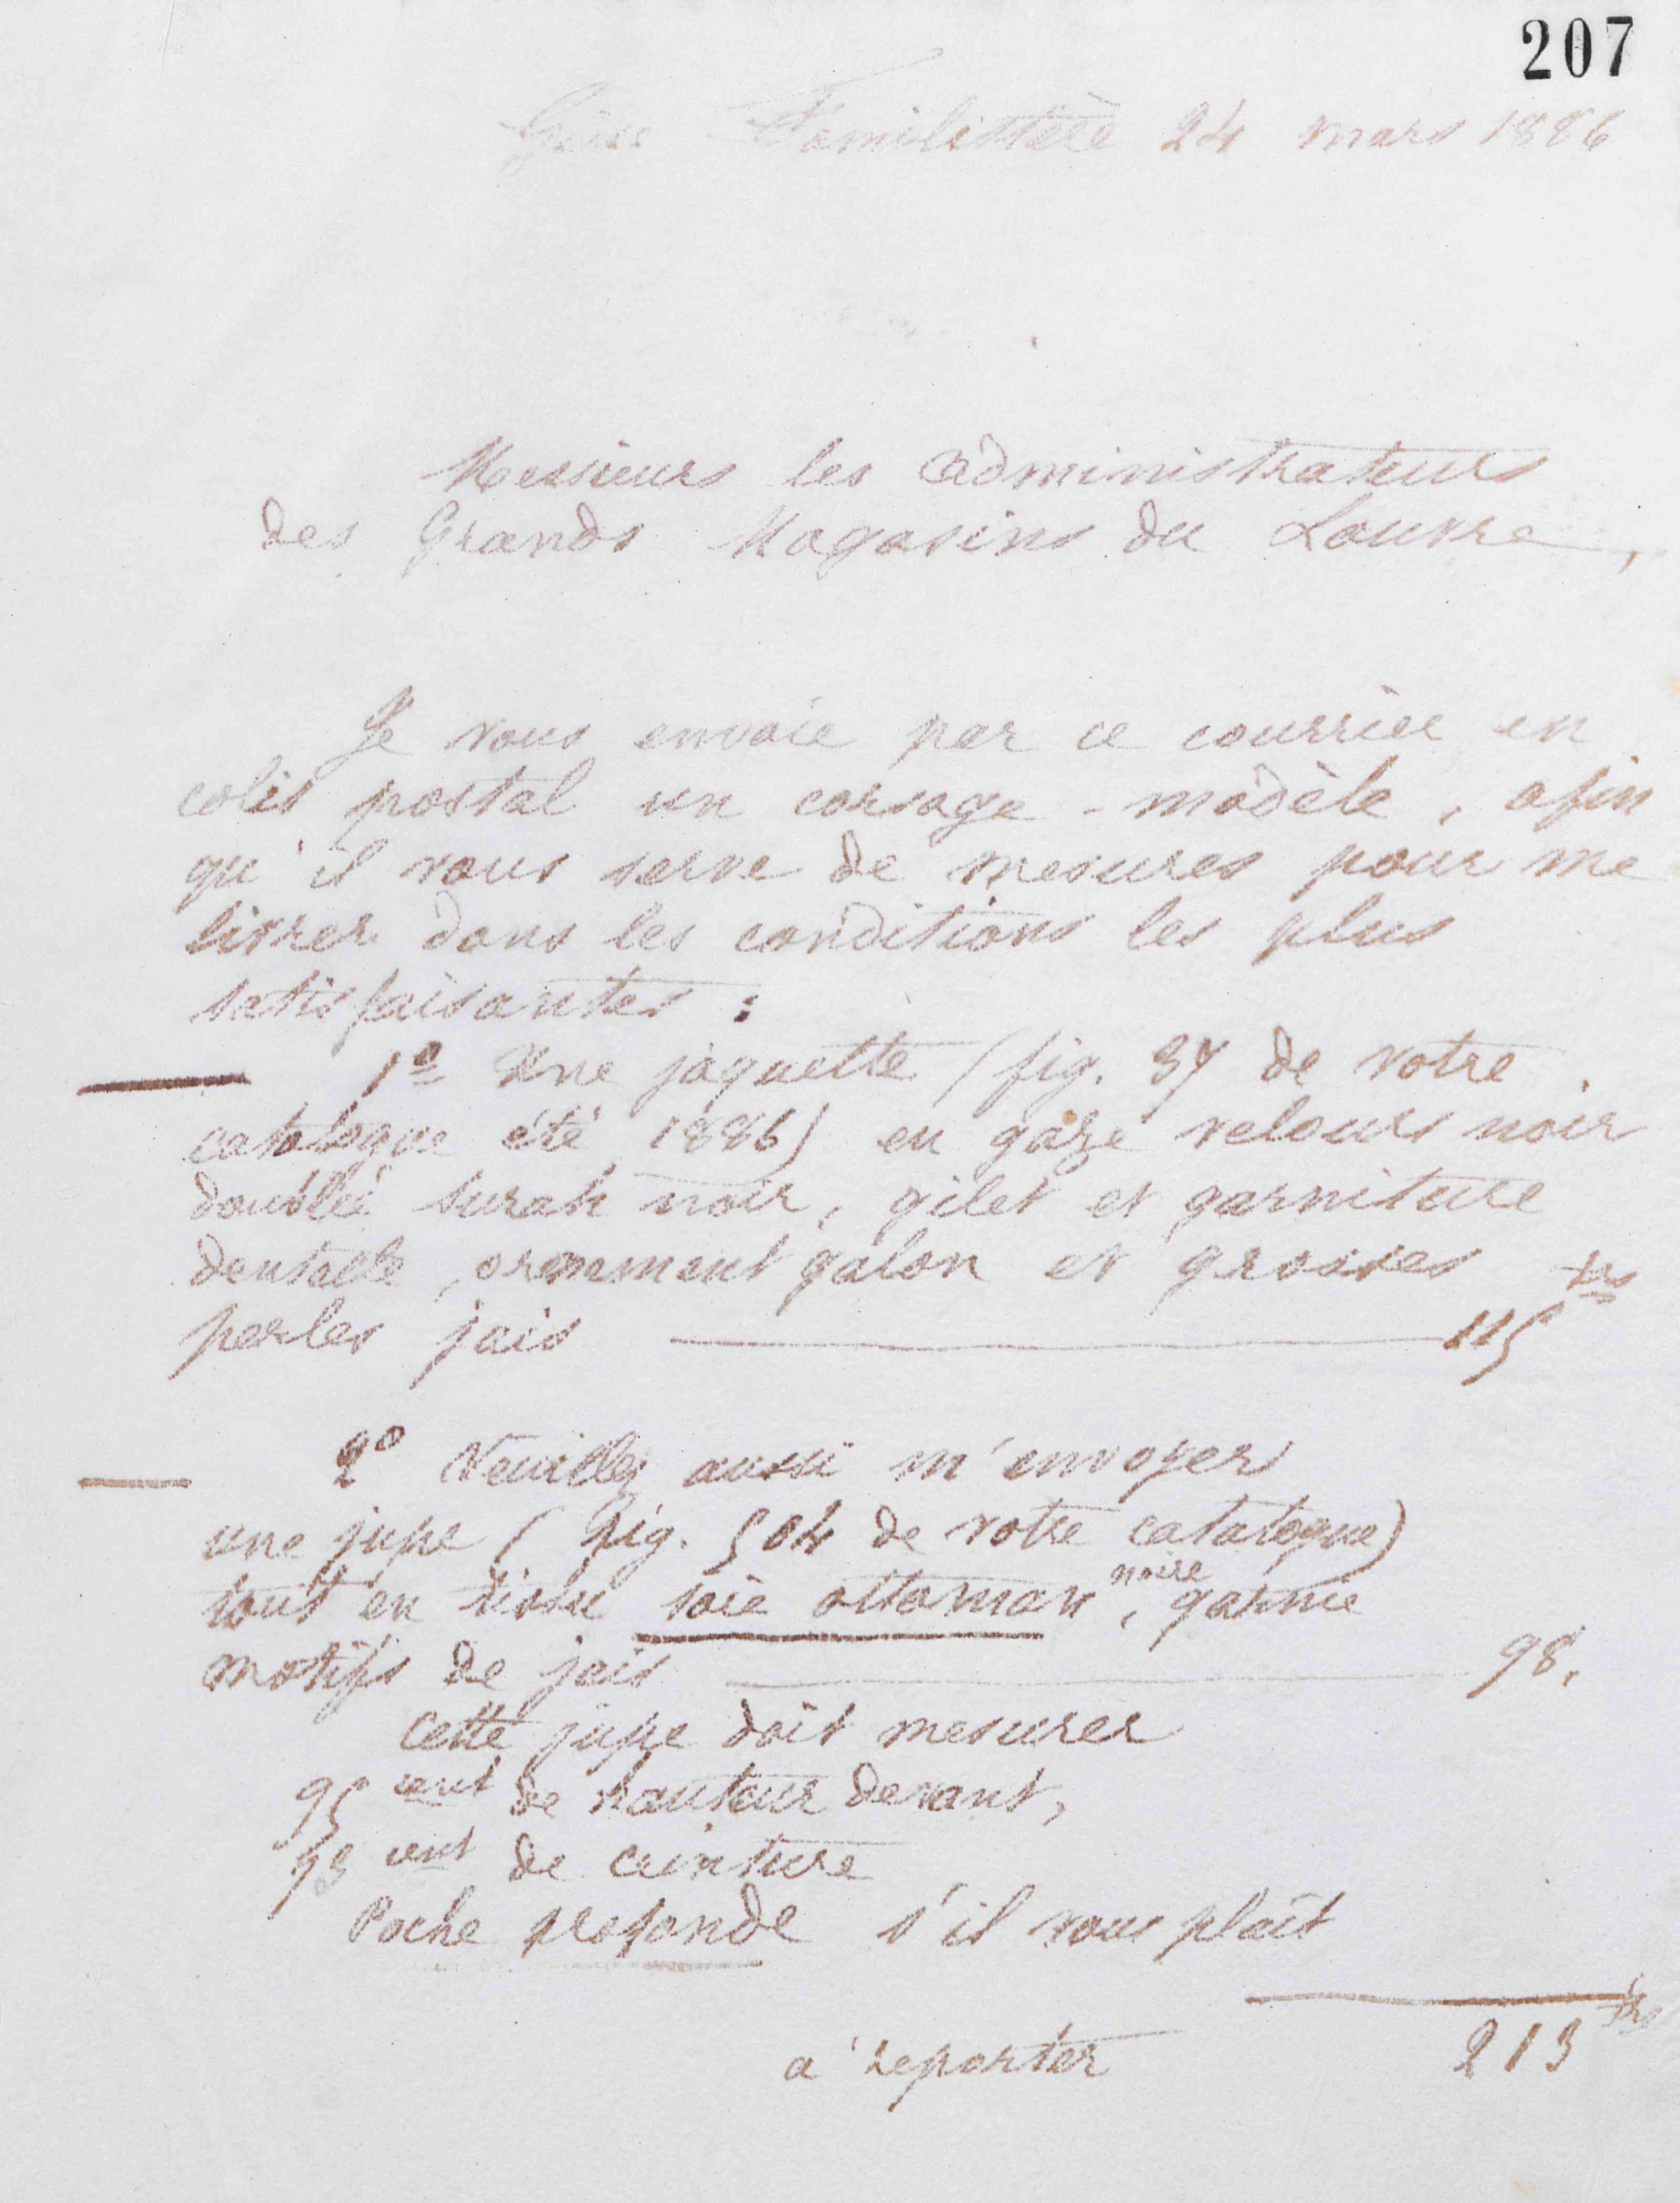 207
Guise Familistère 24 mars 1886
Messieurs les administrateurs
des Grands Magasins du Louvre,
Je vous envoie par ce courrier en
colis postal un corsage-modèle, afin
qu'il vous serve de mesures pour me
livrer dans les conditions les plus
satisfaisantes :
1° Une jaquette (fig. 37 de votre
catalogue été 1886) en gaze velours noir
doublée surah noir, gilet et garniture
dentelle, ornement galon et grosses
perles jais 115 frs
2° Veuillez aussi m'envoyer
une jupe (Fig. 504 de votre catalogue)
tout en tissu soie ottoman noire, garnie
motifs de jais 98,
Cette jupe doit mesurer
95 cent de hauteur devant,
73 cent de ceinture
Poche profonde s'il vous plaît
à reporter 213 frs